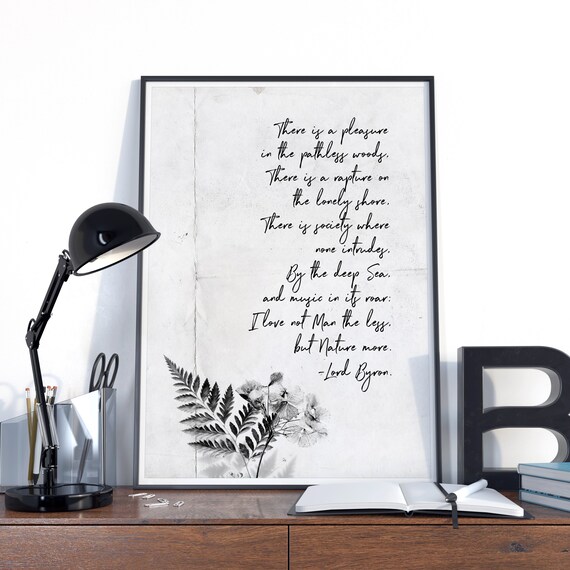 There is a pleasure
in the pathless woods,
There is a rapture on
the lonely shore,
There is society where
none intrudes,
By the deep Sea,
and music in its roar:
I love not Man the less,
but Nature more.
-Lord Byron.
B